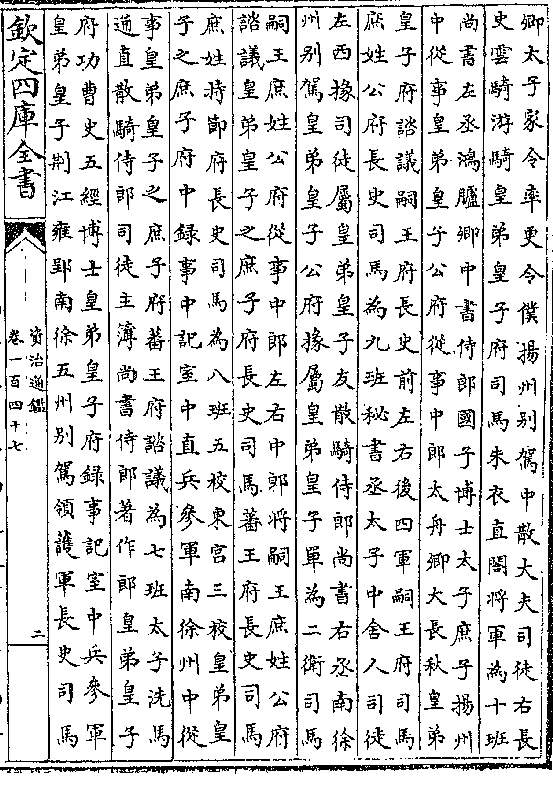 卿太子家令率更令僕揚州别駕中散大夫司徒右長
史雲騎游騎皇弟皇子府司馬朱衣直閤將軍為十班
尚書左丞鴻臚卿中書侍郎國子博士太子庶子揚州
中從事皇弟皇子公府從事中郎太舟卿大長秋皇弟
皇子府諮議嗣王府長史前左右後四軍嗣王府司馬
庶姓公府長史司馬為九班秘書丞太子中舍人司徒
左西掾司徒屬皇弟皇子友散騎侍郎尚書右丞南徐
州别駕皇弟皇子公府掾屬皇弟皇子單為二衛司馬
嗣王庶姓公府從事中郎左右中郎將嗣王庶姓公府
諮議皇弟皇子之庶子府長史司馬蕃王府長史司馬
庶姓持節府長史司馬為八班五校東宫三校皇弟皇
子之庶子府中録事中記室中直兵參軍南徐州中從
事皇弟皇子之庶子府蕃王府諮議為七班太子洗馬
通直散騎侍郎司徒主簿尚書侍郎著作郎皇弟皇子
府功曹史五經博士皇弟皇子府録事記室中兵參軍
皇弟皇子荆江雍郢南徐五州别駕領護軍長史司馬
欽定四庫全書
資治通鑑
卷一百四十七
二